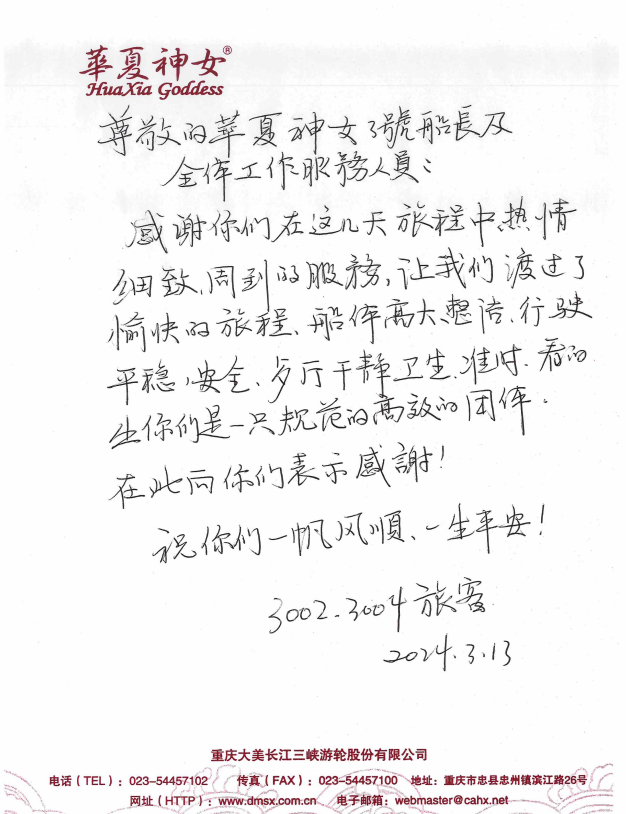 華夏神女®
HuaXia Goddess
尊敬的華夏神女3號船長及
全体工作服務人員：
感谢你们在这几天旅程中热情
细致、周到的服務，让我们渡过了
愉快的旅程、船体高大、整洁、行驶
平稳、安全、歺厅干静卫生、准时、看的
出你们是一只规范的高效的团体。
在此向你们表示感謝！
祝你们一帆风順、一生平安！
3002.3004旅客
2024.3.13
重庆大美长江三峡游轮股份有限公司
电话（TEL）：023-54457102 传真（FAX）：023-54457100 地址：重庆市忠县忠州镇滨江路26号
网址（HTTP）：www.dmsx.com.cn 电子邮箱：webmaster@cahx.net